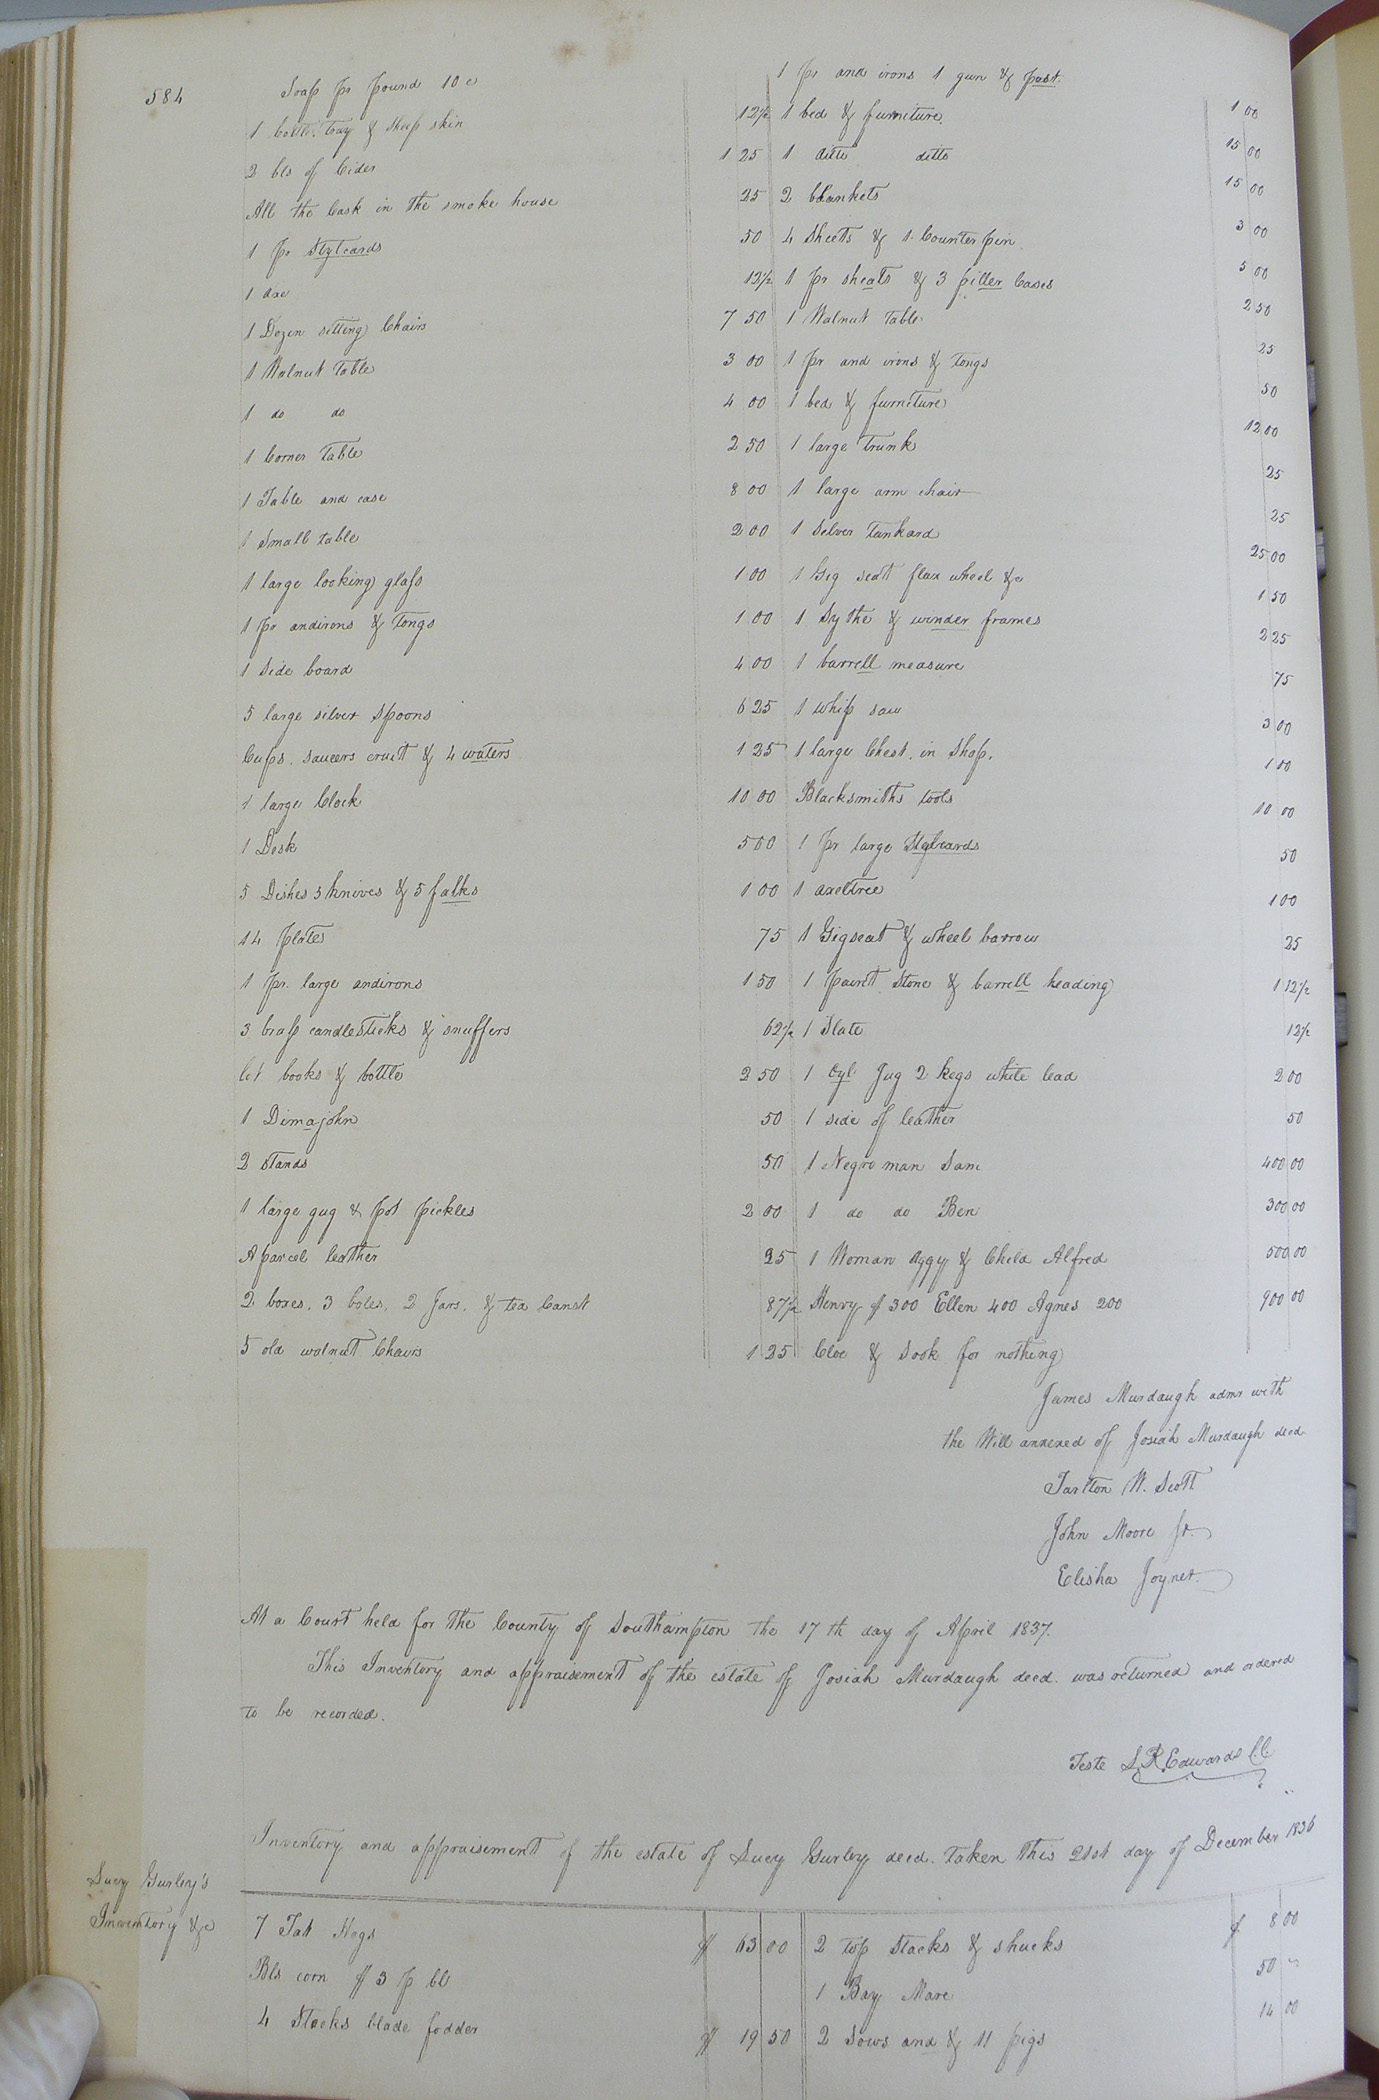 584
Soap pr pound 10 c
1 bottle. tray & sheep skin 12½
2 bls of Cider 1 25
All the Cask in the smoke house 25
1 pr Stylcards 50
1 axe 12½
1 Dozen sitting Chairs 7 50
1 Walnut Table 3 00
1 do do 4 00
1 Corner Table 2 50
1 Table and case 8 00
1 Small table 2 00
1 large looking glass 1 00
1 pr andirons & Tongs 1 00
1 Side board 4 00
5 large silver Spoons 6 25
Cups. saucers cruit & 4 waters 1 25
1 large Clock 10 00
1 Desk 5 00
5 Dishes 5 knives & 5 falks 1 00
14 plates 75
1 pr. large andirons 1 50
3 brass candlesticks & snuffers 62½
lot books & bottle 2 50
1 Dimajohn 50
2 Stands 50
1 large gug & pot pickles 2 00
A parcel leather 25
2 boxes. 3 boles. 2 Jars. & tea Canst 87½
5 old walnut Chairs 1 25
1 pr and irons 1 gun & past. 1 00
1 bed & furniture. 15 00
1 ditto ditto 15 00
2 blankets 3 00
4 Sheets & 1 Counterpin 5 00
1 pr sheats & 3 piller Cases 2 50
1 Walnut Table 25
1 pr and irons & Tongs 50
1 bed & furniture 12 00
1 large Trunk 25
1 large arm chair 25
1 Silver Tankard 25 00
1 Gig seat flax wheel &c 1 50
1 Sythe & winder frames 2 25
1 barrell measure 75
1 whip saw 3 00
1 large Chest. in Shop. 1 00
Blacksmiths tools 10 00
1 pr large Stylcards 50
1 axeltree 1 00
1 Gigseat & wheel barrow 25
1 paint Stone & barrell heading 1 12½
1 Slate 12½
1 Oyl Jug 2 kegs white lead 2 00
1 side of leather 50
1 Negro man Sam 400 00
1 do do Ben 300 00
1 Woman Aggy & Child Alfred 500 00
Henry $300 Ellen 400 Agnes 200 900 00
Cloe & Sook for nothing
James Murdaugh admr with
the Will annexed of Josiah Murdaugh decd
Tarlton W. Scott
John Moore Jr.
Elisha Joyner.
At a Court held for the County of Southampton the 17th day of April 1837.
This Inventory and appraisement of the estate of Josiah Murdaugh decd. was returned and ordered
to be recorded.
Teste L. R. Edwards C.C.
Inventory and appraisement of the estate of Sucy Gurley decd. taken this 21st day of December 1836
Sucy Gurley's
Inventory &c
7 Fat Hogs $ 63 00
Bls corn $3 p bl
4 Stacks blade fodder $ 19 50
2 top Stacks & shucks $ 8 00
1 Bay Mare 50 "
2 Sows and & 11 pigs 14 00